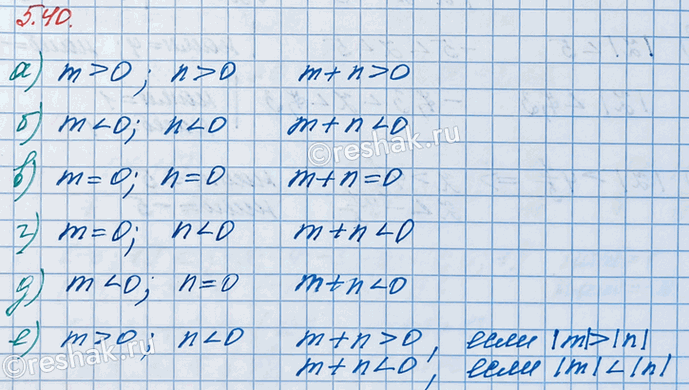 5.40.
а) m>0; n>0 m+n>0
б) m<0; n<0 m+n<0
в) m=0; n=0 m+n=0
г) m=0; n<0 m+n<0
д) m<0; n=0 m+n<0
е) m>0; n<0 m+n>0, если |m|>|n|
m+n<0, если |m|<|n|
©reshak.ru